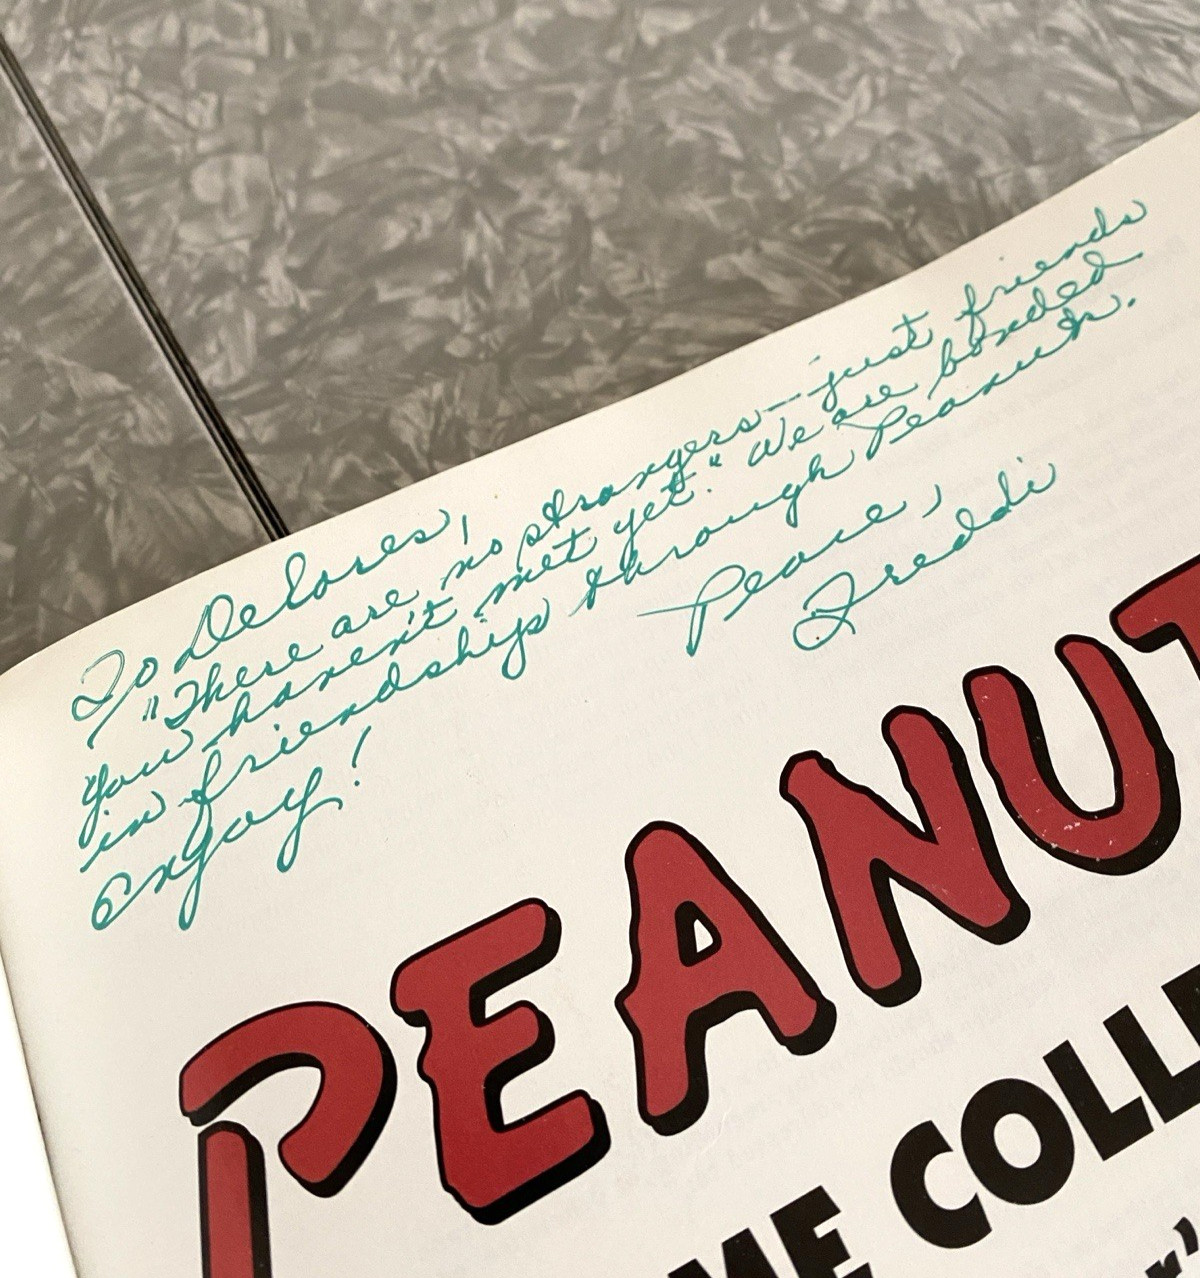 To Delores,
"There are no strangers—just friends
you haven't met yet." We are bonded
in friendship through Peanuts.
Enjoy!
Peace,
Freddi
PEANUT
ME COLLE
r'